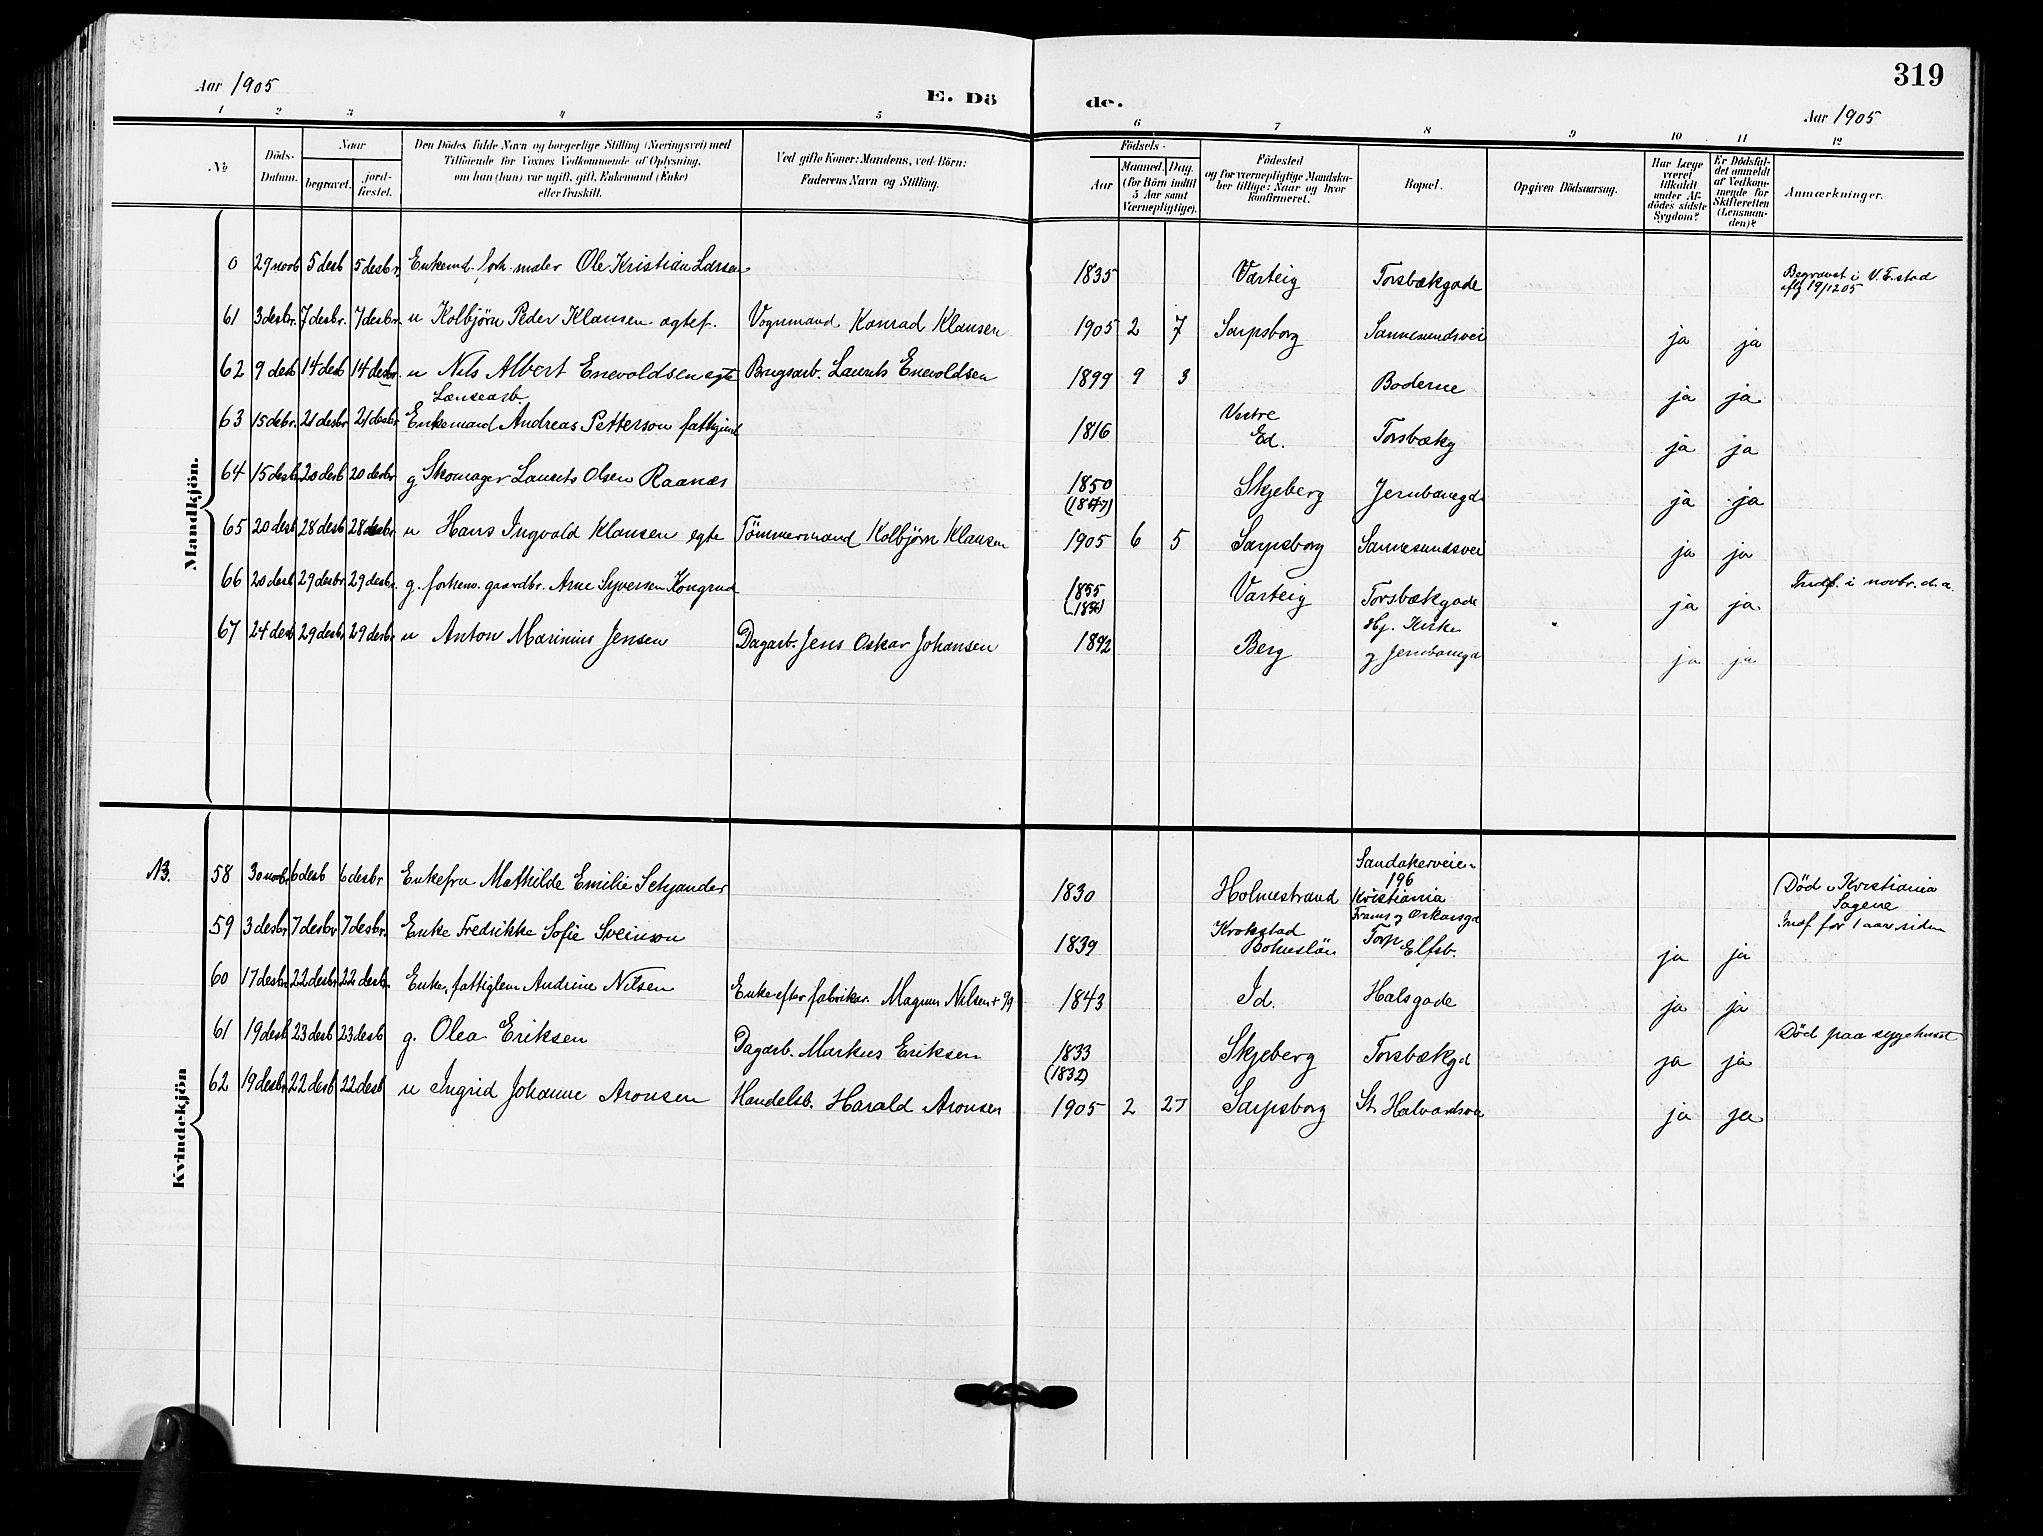 319
Aar 1905
E. Dö de.
Aar 1905
1 2 3 4 5 6 7 8 9 10 11 12
No
Döds-Datum.
Naar
begravet.
jord-fæstet.
Den Dödes fulde Navn og borgerlige Stilling (Næringsvei) med
Tilföiende for Voxnes Vedkommende af Oplysning,
om han (hun) var ugift, gift, Enkemand (Enke)
eller fraskilt.
Ved gifte Koner: Mandens, ved Börn:
Faderens Navn og Stilling.
Födsels-
Aar
Maaned. Dag.
(for Börn indtil
5 Aar samt
Værnepligtige).
Födested
og for værnepligtige Mandska-
ber tillige: Naar og hvor
konfirmeret.
Bopæl.
Opgiven Dödsaarsag.
Har Læge
været
tilkaldt
under Af-
dödes sidste
Sygdom?
Er Dödsfal-
det anmeldt
af Vedkom-
mende for
Skifteretten
(Lensman-
den)?
Anmærkninger.
Mandkjön.
0 29 novb 5 desb 5 desbr. Enkemd. forh. maler Ole Kristian Larsen 1835 Varteig Torsbækgade Begravet i V. E.stad
19/12 05
61 3 desbr. 7 desbr. 7 desbr. u Kolbjørn Peder Klausen ægtef. Vognmand Konrad Klausen 1905 2 7 Sarpsborg Sannesundsvei ja ja
62 9 desb 14 desb 14 desbr. u Nils Albert Enevoldsen egte Brugsarb. Laurits Enevoldsen 1899 9 3 Boderne ja ja
Lænsearb.
63 15 debr. 21 desbr 21 desbr Enkemand Andreas Petterson fattiglem 1816 Vestre
Ed. Torsbækg ja ja
64 15 desb 20 desb 20 desbr g Skomager Laurits Olsen Raanæs 1850 Skjeberg Jernbanegd ja ja
65 20 desb 28 desb 28 desbr u Hans Ingvald Klausen egte Tömmermand Kolbjörn Klausen 1905 6 5 Sarpsborg Sannesundsvei ja ja
66 20 desb 29 desbr 29 desbr. g. forhenv. gaardbr. Arne Syversen Kongrud 1855
(1856) Varteig Torsbækgade ja ja Indf. i novbr. d.a.
67 24 desb 29 desbr. 29 desbr. u Anton Marinius Jensen Dagarb. Jens Oskar Johansen 1892 Berg Hj. Kirke
g Jernbanegd ja ja
Kvindekjön
NB. 58 30 novbr 6 desb 6 desbr Enkefru Mathilde Emilie Schjander 1830 Holmestrand Sandakerveien
196
Kristiania Død i Kristiania
Sagene
Indf for 1 aar siden
59 3 desbr 7 desbr 7 desbr. Enke Fredrikke Sofie Sveinson 1839 Krokstad
Bohuslän Frams g Oskarsgd
Torp Elfsb. ja ja
60 17 desbr 22 desbr 22 desb. Enke, fattiglem Andrine Nilsen Enke efter fabrikar. Magnus Nilsen 1843 Id. Halsgade ja ja
61 19 desb 23 desb 23 desb g. Olea Eriksen Dagarb. Markus Eriksen 1833
(1832) Skjeberg Torsbækgd ja ja Død paa sygehuset
62 19 desbr 22 desb 22 desb u Ingrid Johanne Aronsen Handelsb. Harald Aronsen 1905 2 27 Sarpsborg St. Halvardsvei ja ja